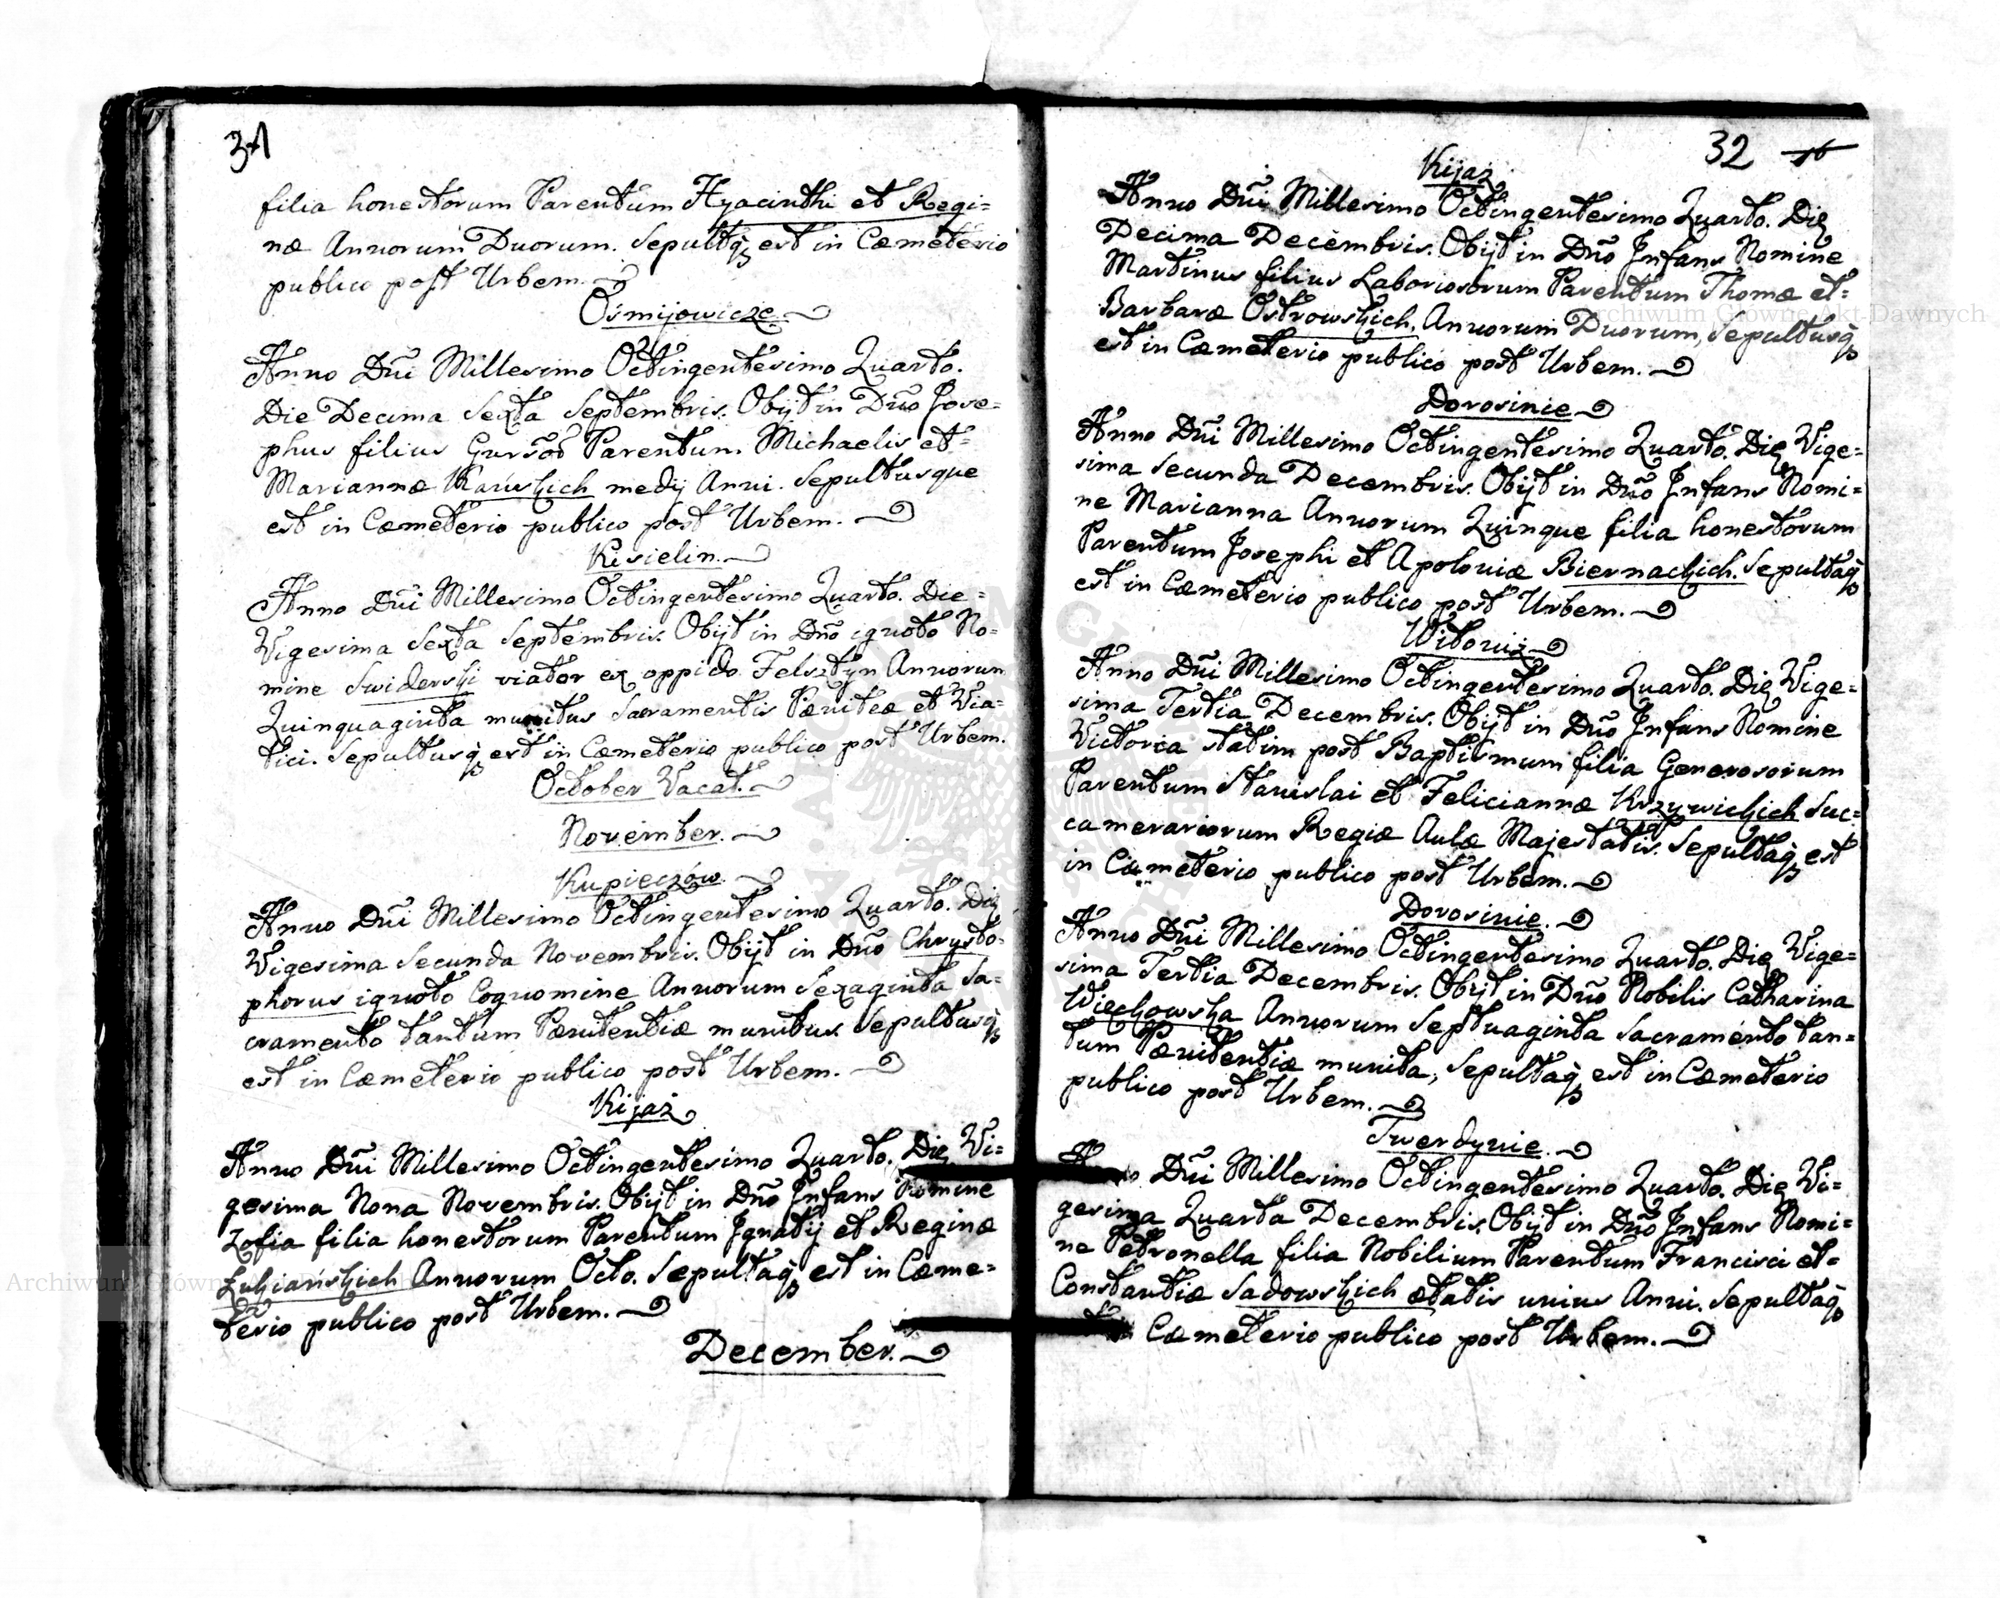 31
filia honestorum Parentum Hyacinthi et Regi=
næ Annorum Duorum. Sepultaq est in Cæmeterio
publico post Urbem.
Ośmijowicze
Anno Dni Millesimo Octingentesimo Quarto.
Die Decima Sexta Septembris. Obijt in Dno Jose=
phus filius Parentum Michaelis et=
Mariannæ medij Anni. Sepultusque
est in Cæmeterio publico post Urbem.
Kisielin.
Anno Dni Millesimo Octingentesimo Quarto. Die=
Vigesima Sexta Septembris. Obijt in Dno ignoto No=
mine Swiderski viator ex oppido Felsztyn Annorum
Quinquaginta munitus Sacramentis Pæniteæ et Via=
tici. Sepultusq est in Cæmeterio publico post Urbem.
October Vacat.
November.
Kupieczów.
Anno Dni Millesimo Octingentesimo Quarto. Die
Vigesima Secunda Novembris. Obijt in Dno Chrysto=
phorus ignoto Cognomine Annorum Sexaginta Sa=
cramento tantum Pænitentiæ munitus Sepultusq
est in Cæmeterio publico post Urbem.
Kijaż
Anno Dni Millesimo Octingentesimo Quarto. Die Vi=
gesima Nona Novembris. Obijt in Dno Infans Nomine
Zofia filia honestorum Parentum Ignatij et Reginæ
Łukiańskich Annorum Octo. Sepultaq est in Cæme=
terio publico post Urbem.
December.
32 16
Kijaż
Anno Dni Millesimo Octingentesimo Quarto. Die
Decima Decembris. Obijt in Dno Infans Nomine
Martinus filius Laboriosorum Parentum Thomæ et=
Barbaræ Ostrowskich, Annorum Duorum, Sepultusq
est in Cæmeterio publico post Urbem.
Dorosinie
Anno Dni Millesimo Octingentesimo Quarto. Die Vige=
sima Secunda Decembris. Obijt in Dno Infans Nomi=
ne Marianna Annorum Quinque filia honestorum
Parentum Josephi et Apoloniæ Biernackich. Sepultaq
est in Cæmeterio publico post Urbem.
Witoniż
Anno Dni Millesimo Octingentesimo Quarto. Die Vige=
sima Tertia Decembris. Obijt in Dno Infans Nomine
Victorea statim post Baptismum filia Generosorum
Parentum Stanislai et Feliciannæ Krzywickich Suc=
camerariorum Regiæ Aulæ Majestatis. Sepultaq est
in Cæmeterio publico post Urbem.
Dorosinie.
Anno Dni Millesimo Octingentesimo Quarto. Die Vige=
sima Tertia Decembris. Obijt in Dno Nobilis Catharina
Wiechowska Annorum Septuaginta Sacramento tan=
tum Pænitentiæ munita, Sepultaq est in Cæmeterio
publico post Urbem.
Twerdynie.
Dni Millesimo Octingentesimo Quarto. Die Vi=
gesima Quarta Decembris. Obijt in Dno Infans Nomi=
ne Petronella filia Nobilium Parentum Francisci et=
Constantiæ Sadowskich ætatis unius Anni. Sepultaq
Cæmeterio publico post Urbem.
Archiwum Główne Akt Dawnych